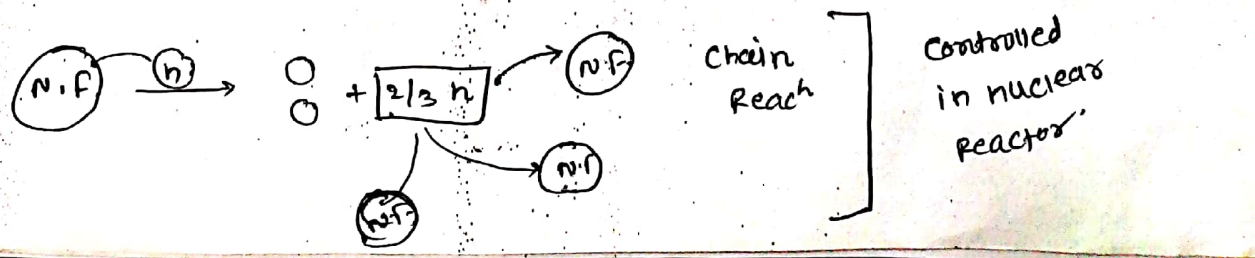 N.F
n
+ 2/3 n
N.F
N.F
N.F
Chain
Reacⁿ
Controlled
in nuclear
Reactor.